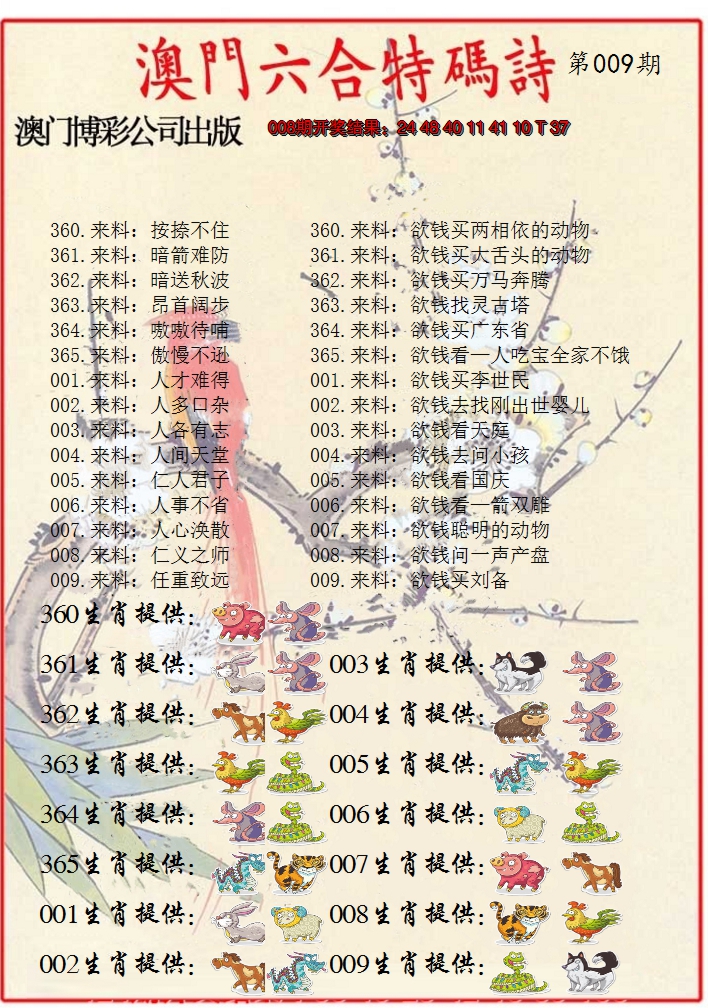 澳門六合特碼詩 第009期
澳门博彩公司出版 008期开奖结果：24 48 40 11 41 10 T 37
360.来料：按捺不住 360.来料：欲钱买两相依的动物
361.来料：暗箭难防 361.来料：欲钱买大舌头的动物
362.来料：暗送秋波 362.来料：欲钱买万马奔腾
363.来料：昂首阔步 363.来料：欲钱找灵古塔
364.来料：嗷嗷待哺 364.来料：欲钱买广东省
365.来料：傲慢不逊 365.来料：欲钱看一人吃宝全家不饿
001.来料：人才难得 001.来料：欲钱买李世民
002.来料：人多口杂 002.来料：欲钱去找刚出世婴儿
003.来料：人各有志 003.来料：欲钱看天庭
004.来料：人间天堂 004.来料：欲钱去问小孩
005.来料：仁人君子 005.来料：欲钱看国庆
006.来料：人事不省 006.来料：欲钱看一箭双雕
007.来料：人心涣散 007.来料：欲钱聪明的动物
008.来料：仁义之师 008.来料：欲钱问一声产盘
009.来料：任重致远 009.来料：欲钱买刘备
360生肖提供：
361生肖提供： 003生肖提供：
362生肖提供： 004生肖提供：
363生肖提供： 005生肖提供：
364生肖提供： 006生肖提供：
365生肖提供： 007生肖提供：
001生肖提供： 008生肖提供：
002生肖提供： 009生肖提供：